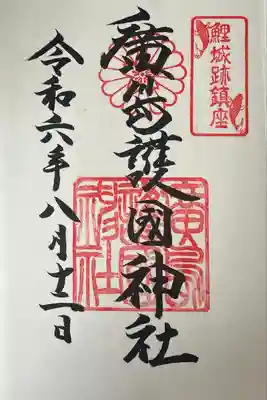 鯉城跡鎮座
廣島護國神社
廣島護國神社
令和六年八月十二日